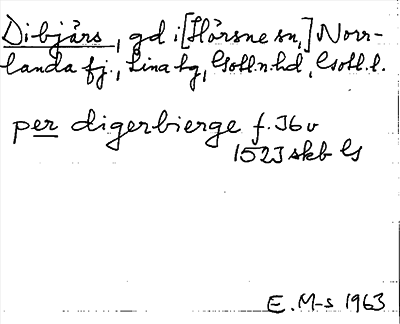 Dibjärs, gd i [Hörsne sn,] Norr-
landa fj., Lina tg, Gotl. n. hd, Gotl. l.
per digerbierge f. 36 v
1523 skb G
E. M-s 1963